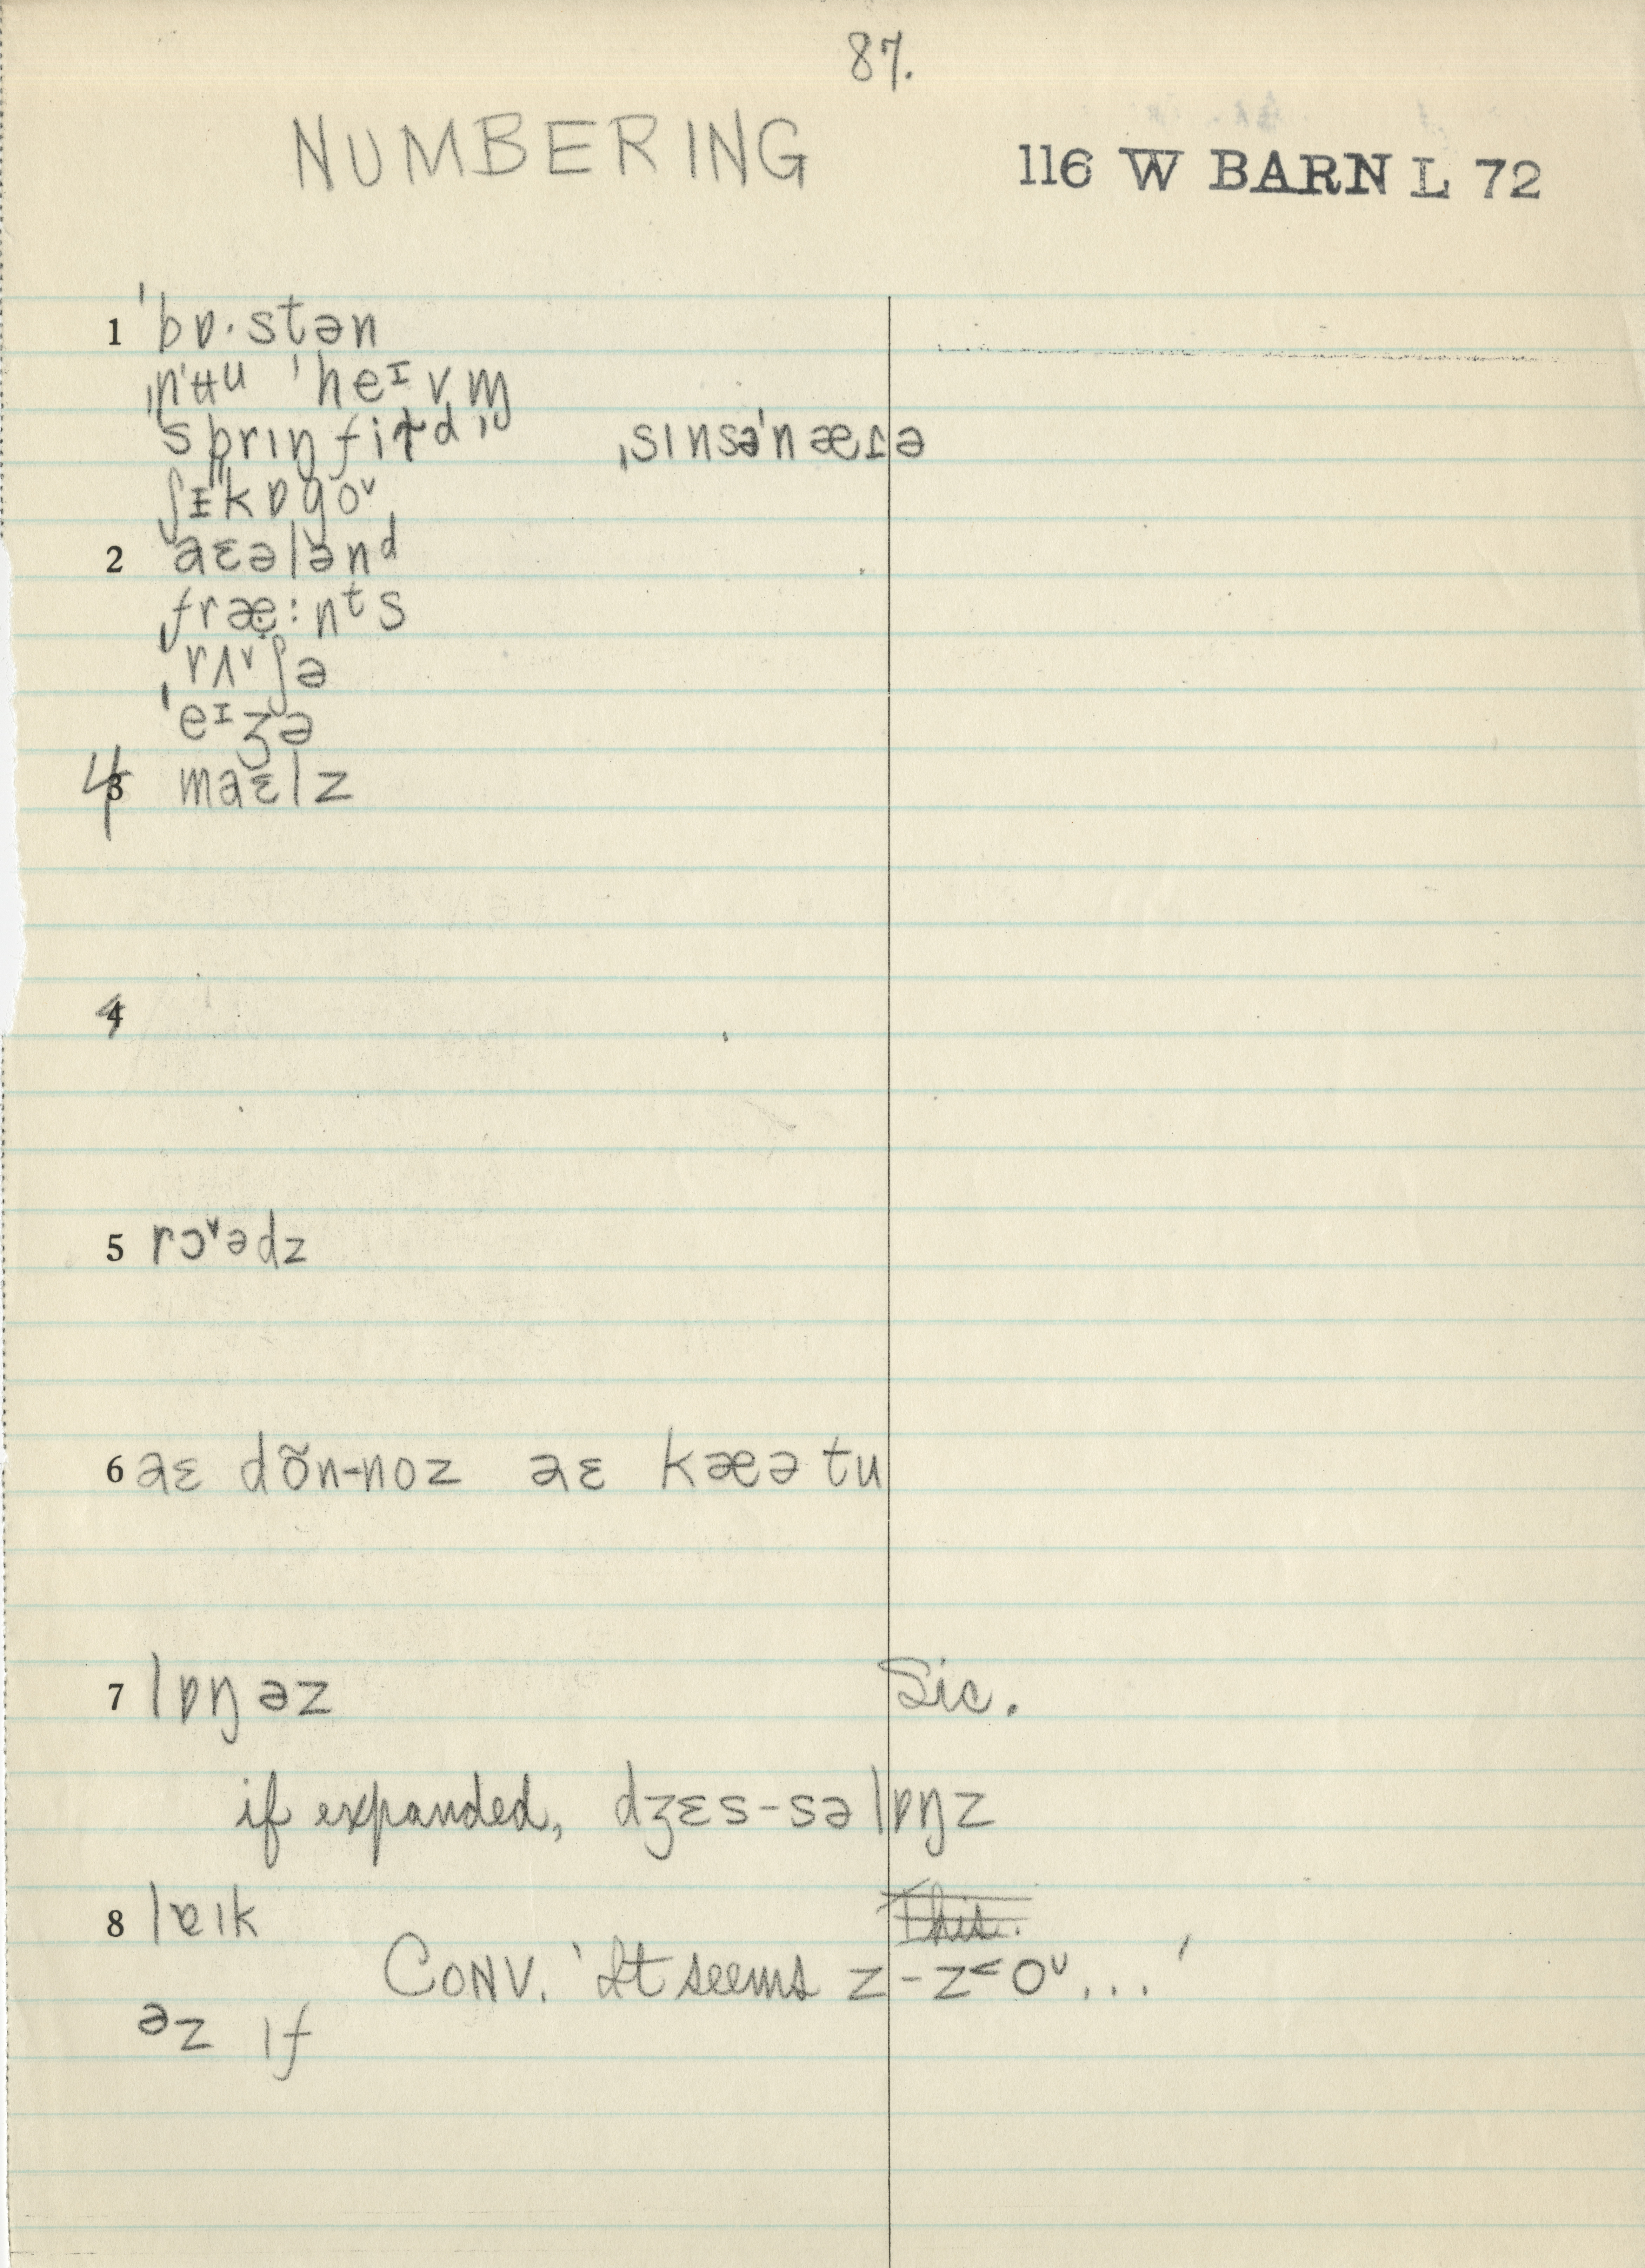 87.
NUMBERING
116 W BARN L 72
1 ˈbɒ·stən
ˌnʉu ˈheɪvm̩
ˈsprɪŋfiɫd ˌsɪnsəˈnæɾə
ʃɪˈkɒgoᵛ
2 ˈaɛələnᵈ
fræ:nᵗs
ˈrʌᵛʃə
ˈeɪʒə
4 3 maɛlz
4
5 rɔᵛədz
6 aɛ dõn-noz aɛ kæə tu
7 lɒŋəz Sic.
if expanded, dʒɛs-səlɒŋz
8 lɐɪk This.
CONV. 'It seems z-z<oᵛ...'
əz ɪf